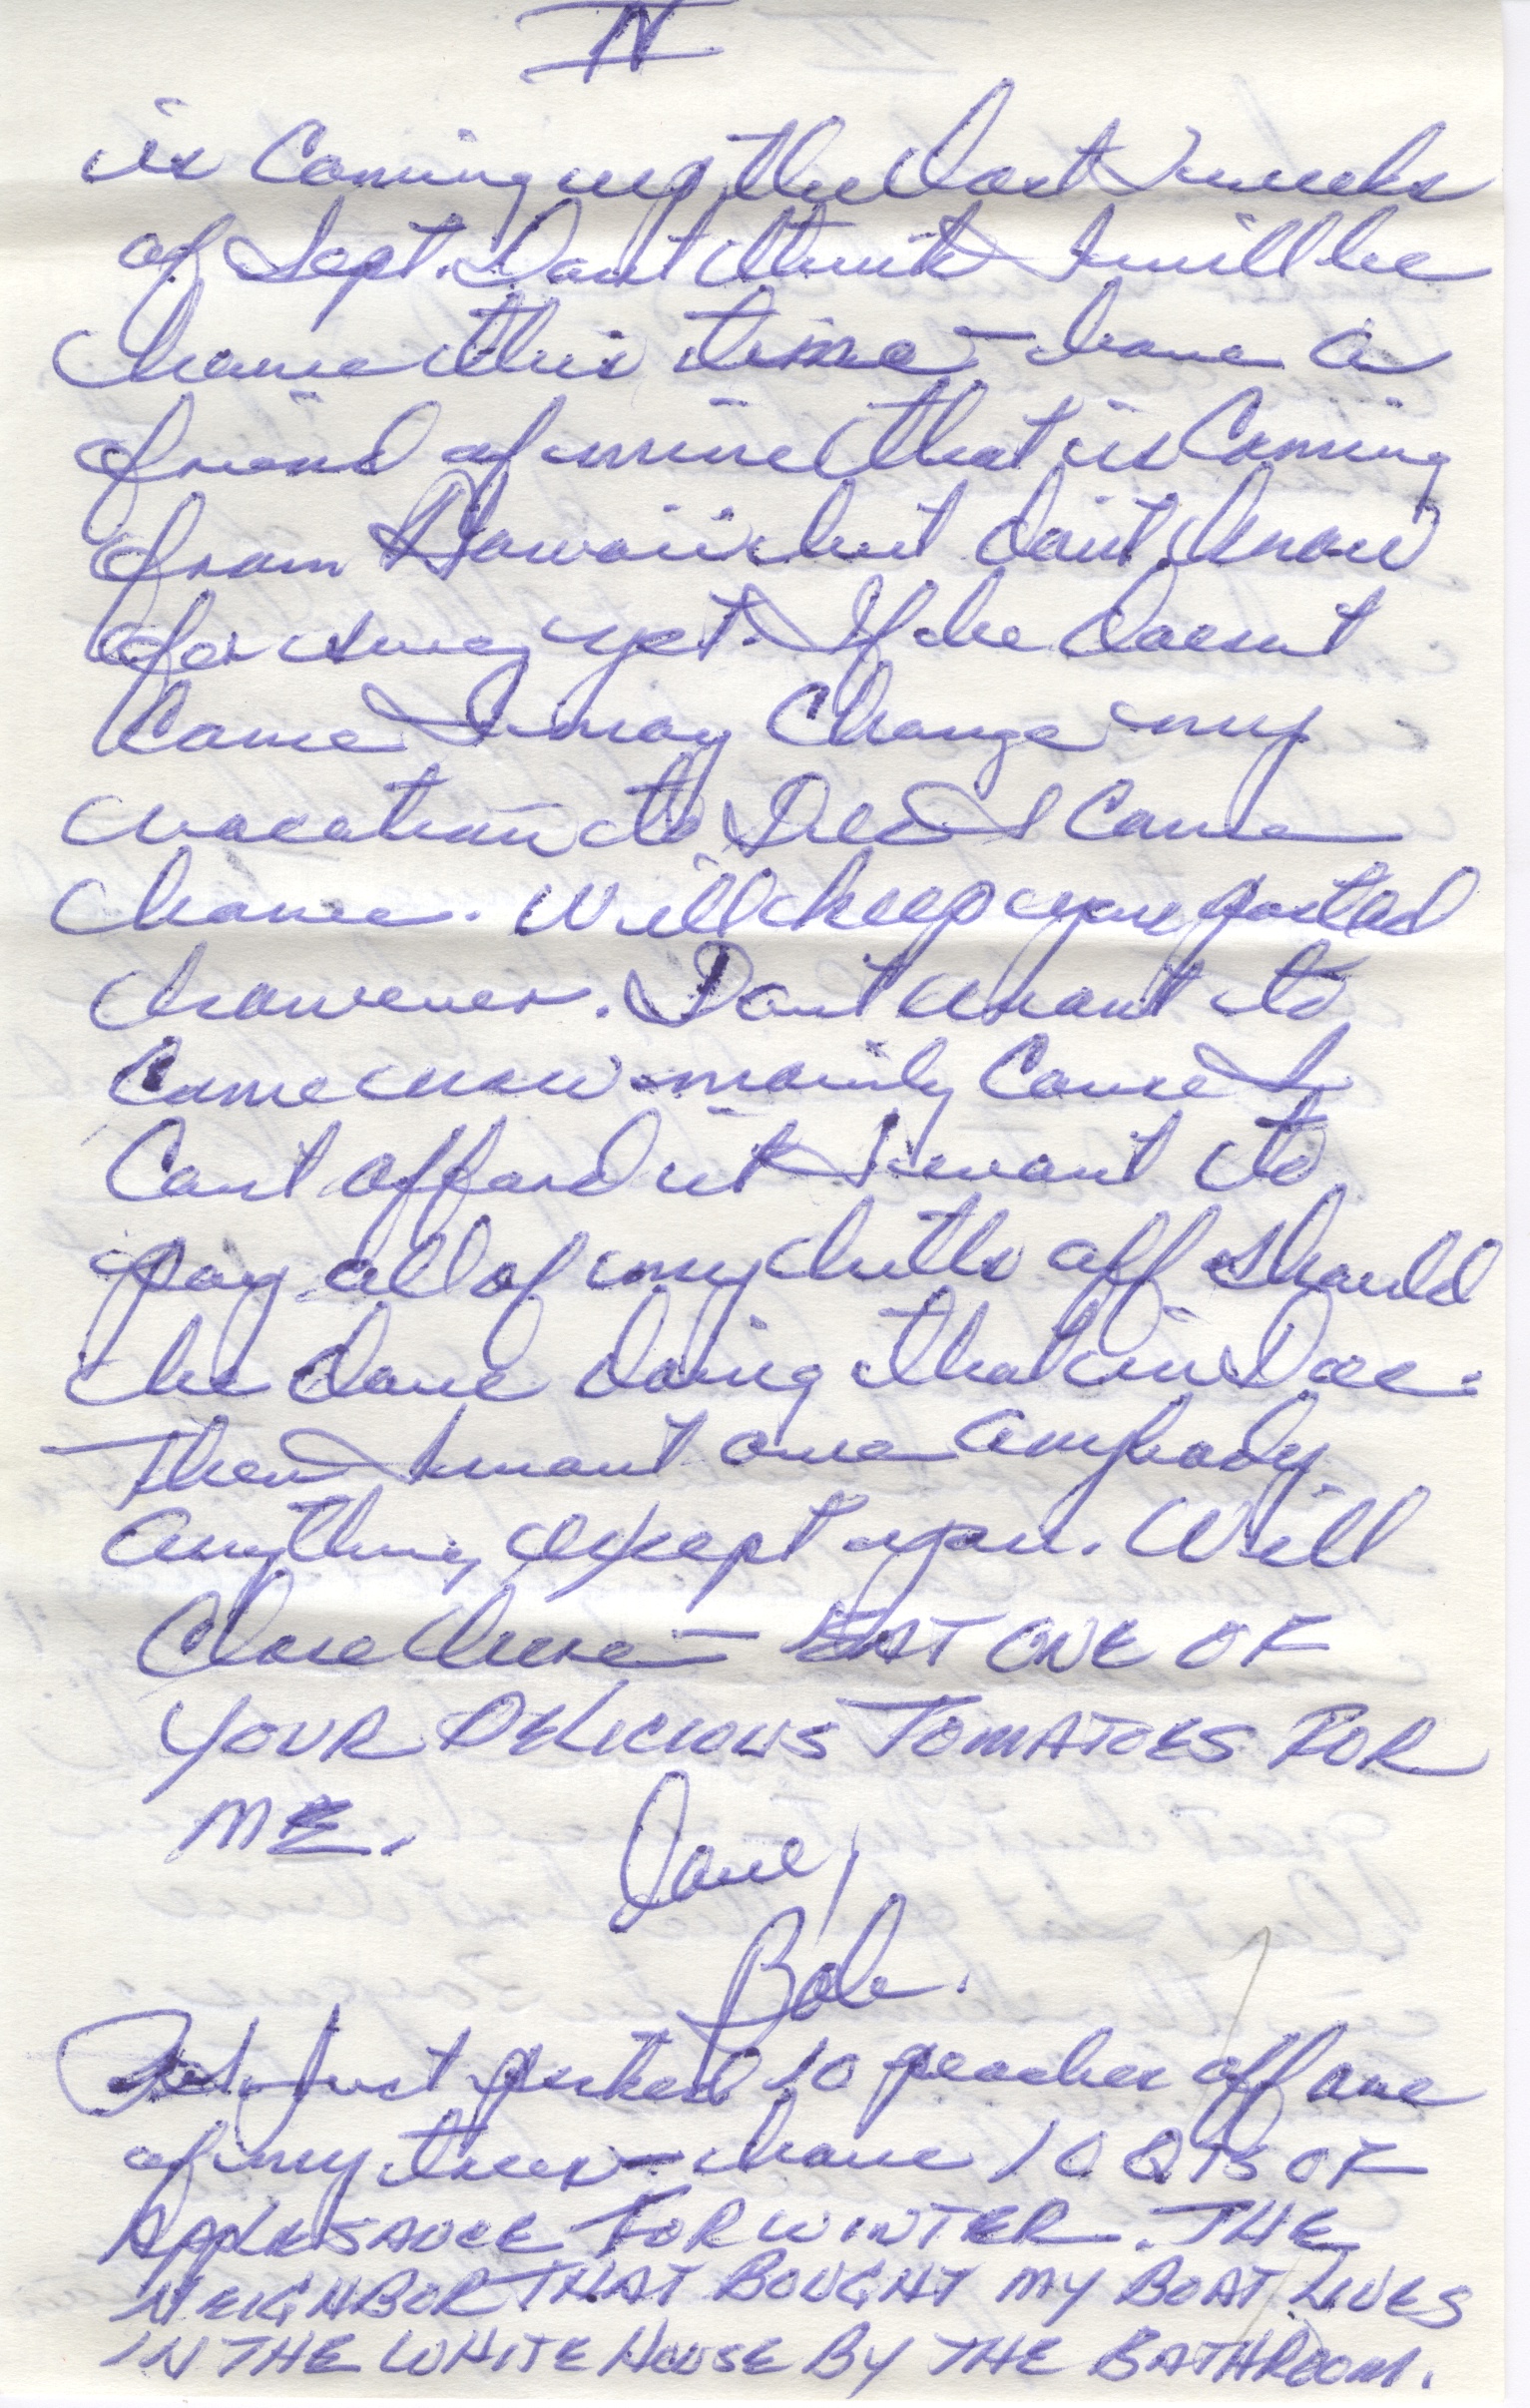 IV
is coming up the last 2 weeks
of Sept. Dont think I will be
home this time - have a
friend of mine that is coming
from Hawaii but dont know
for sure yet. If he doesnt
come I may change my
vacation to Dec & come
home. Will keep you posted
however. Dont want to
come now mainly cause I
cant afford it & want to
pay all of my bills off should
be done doing that in Dec.
Then I wont owe anybody
anything except you. Will
close here - EAT ONE OF
YOUR DELICIOUS TOMATOES FOR
ME.
Love,
Bob.
P.S. Just picked 10 peaches off one
of my trees - have 10 QTS OF
APPLESAUCE FOR WINTER. THE
NEIGHBOR THAT BOUGHT MY BOAT LIVES
IN THE WHITE HOUSE BY THE BATHROOM.